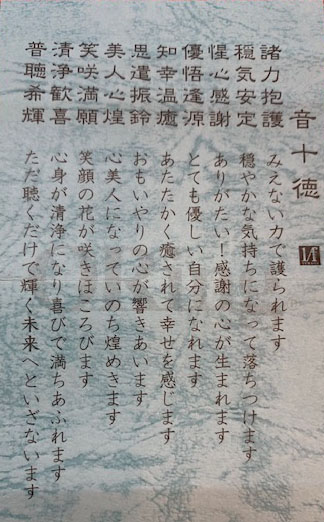 音十徳
諸力抱護 みえない力で護られます
穏気安定 穏やかな気持ちになって落ちつけます
惺心感謝 ありがたい!感謝の心が生まれます
優悟逢源 とても優しい自分になれます
知幸温癒 あたたかく癒されて幸せを感じます
思遣振鈴 おもいやりの心が響きあいます
美人心煌 心美人になっていのち煌めきます
笑咲満願 笑顔の花が咲きほころびます
清浄歓喜 心身が清浄になり喜びで満ちあふれます
普聴希輝 ただ聴くだけで輝く未来へといざないます